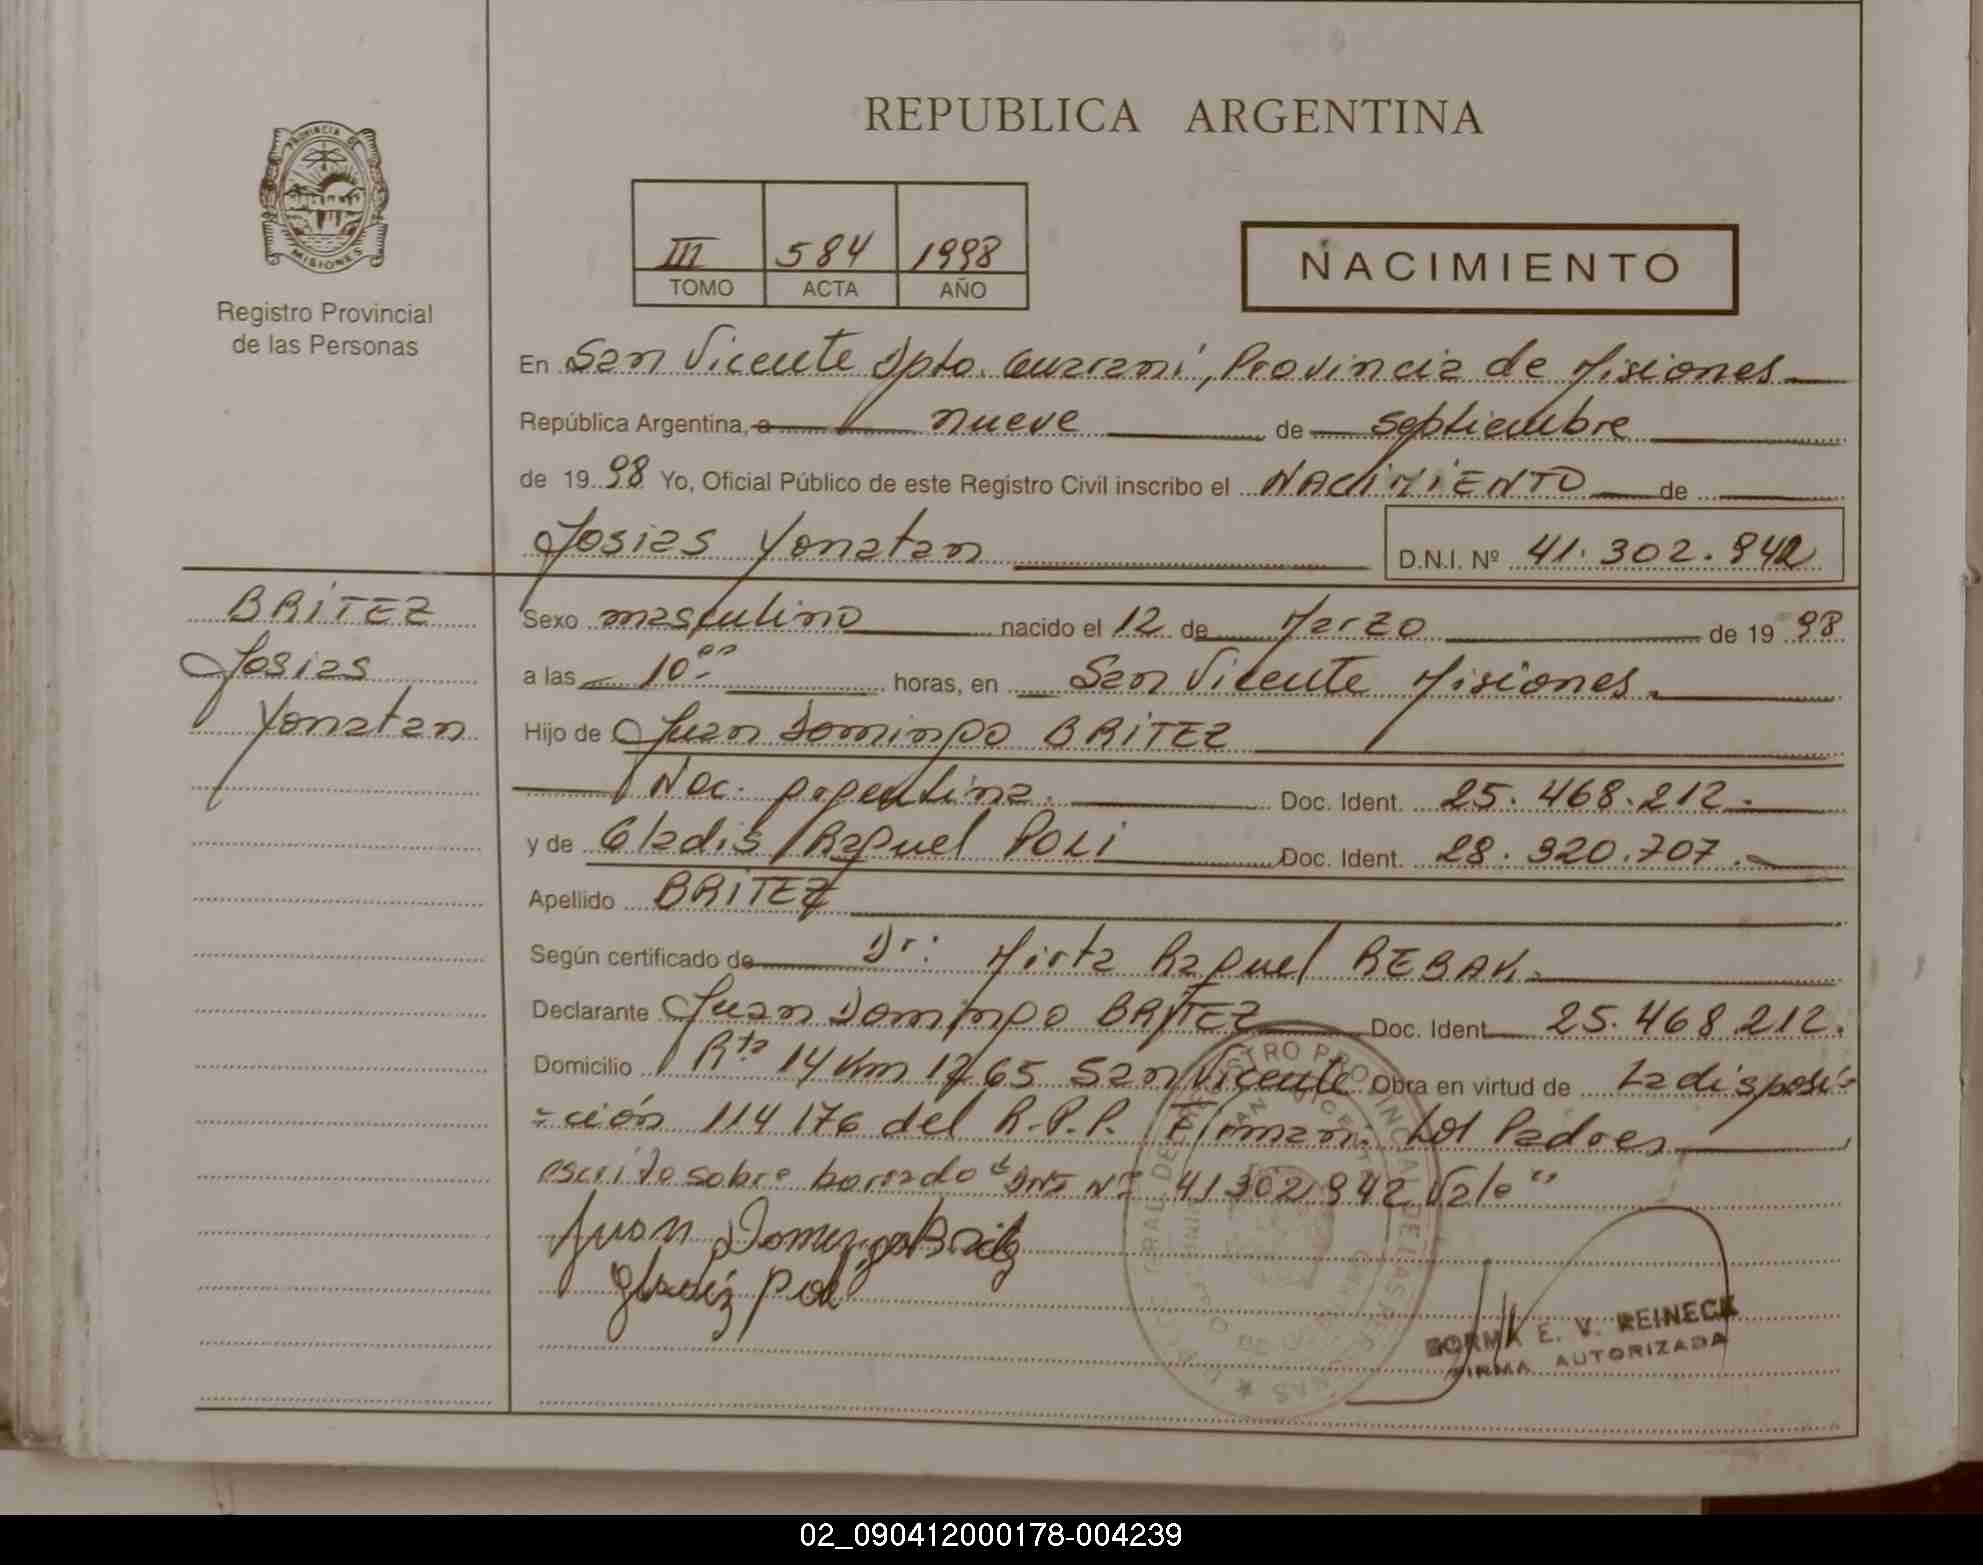 REPUBLICA ARGENTINA
PROVINCIA DE
MISIONES
Registro Provincial
de las Personas
III 584 1998
TOMO ACTA AÑO
NACIMIENTO
En San Vicente Dpto. Guaraní, Provincia de Misiones
República Argentina, a nueve de septiembre
de 1998 Yo, Oficial Público de este Registro Civil inscribo el NACIMIENTO de
Josias Yonatan D.N.I. Nº 41.302.942
BRITEZ
Josias
Yonatan
Sexo masculino nacido el 12 de Marzo de 1998
a las 10 00 horas, en San Vicente Misiones.
Hijo de Juan Domingo BRITEZ
Nac. Argentina. Doc. Ident. 25.468.212.
y de Gladis Raquel POLI Doc. Ident. 28.920.707.
Apellido BRITEZ
Según certificado de Dr: Mirta Raquel REBAK.
Declarante Juan Domingo BRITEZ Doc. Ident. 25.468.212.
Domicilio Rta 14 Km 1265 San Vicente Obra en virtud de La disposi-
=ción 114176 del R.P.P. Firman. Los Padres
escrito sobre borrado "DNI Nº 41302942 Vale"
Juan Domingo Britez
Gladiz Poli
E. V. REINECK
FIRMA AUTORIZADA
02_090412000178-004239